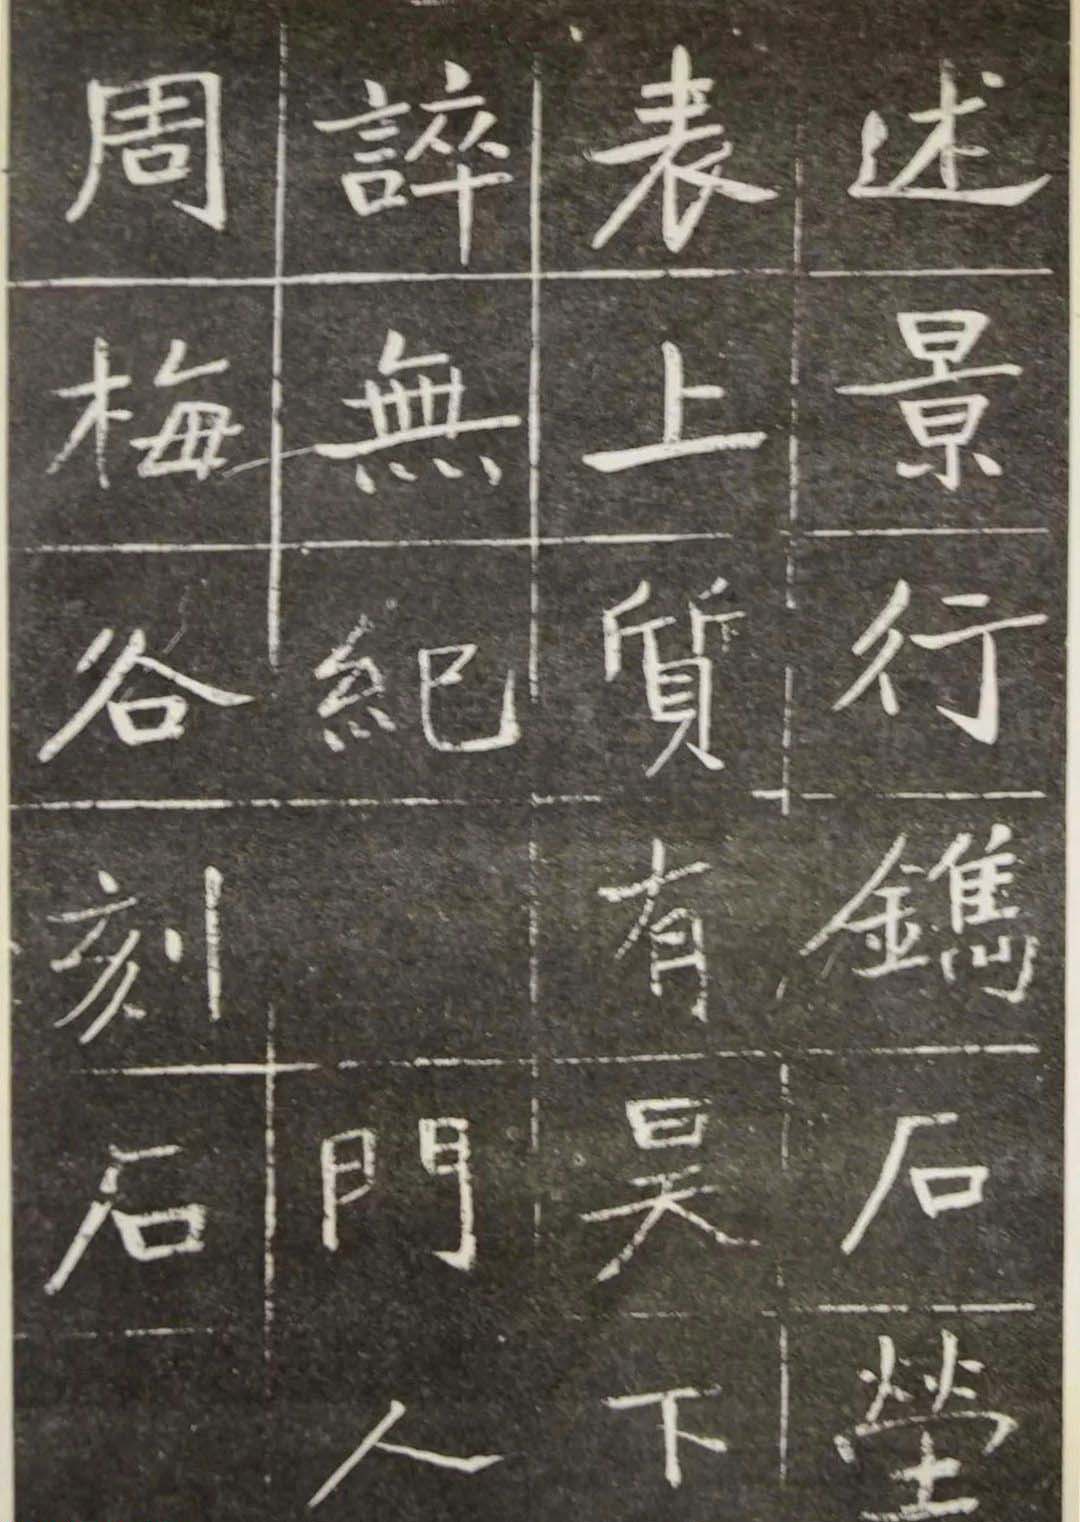 述景行鐫石塋
表上質有昊下
誶無紀門人
周梅谷刻石